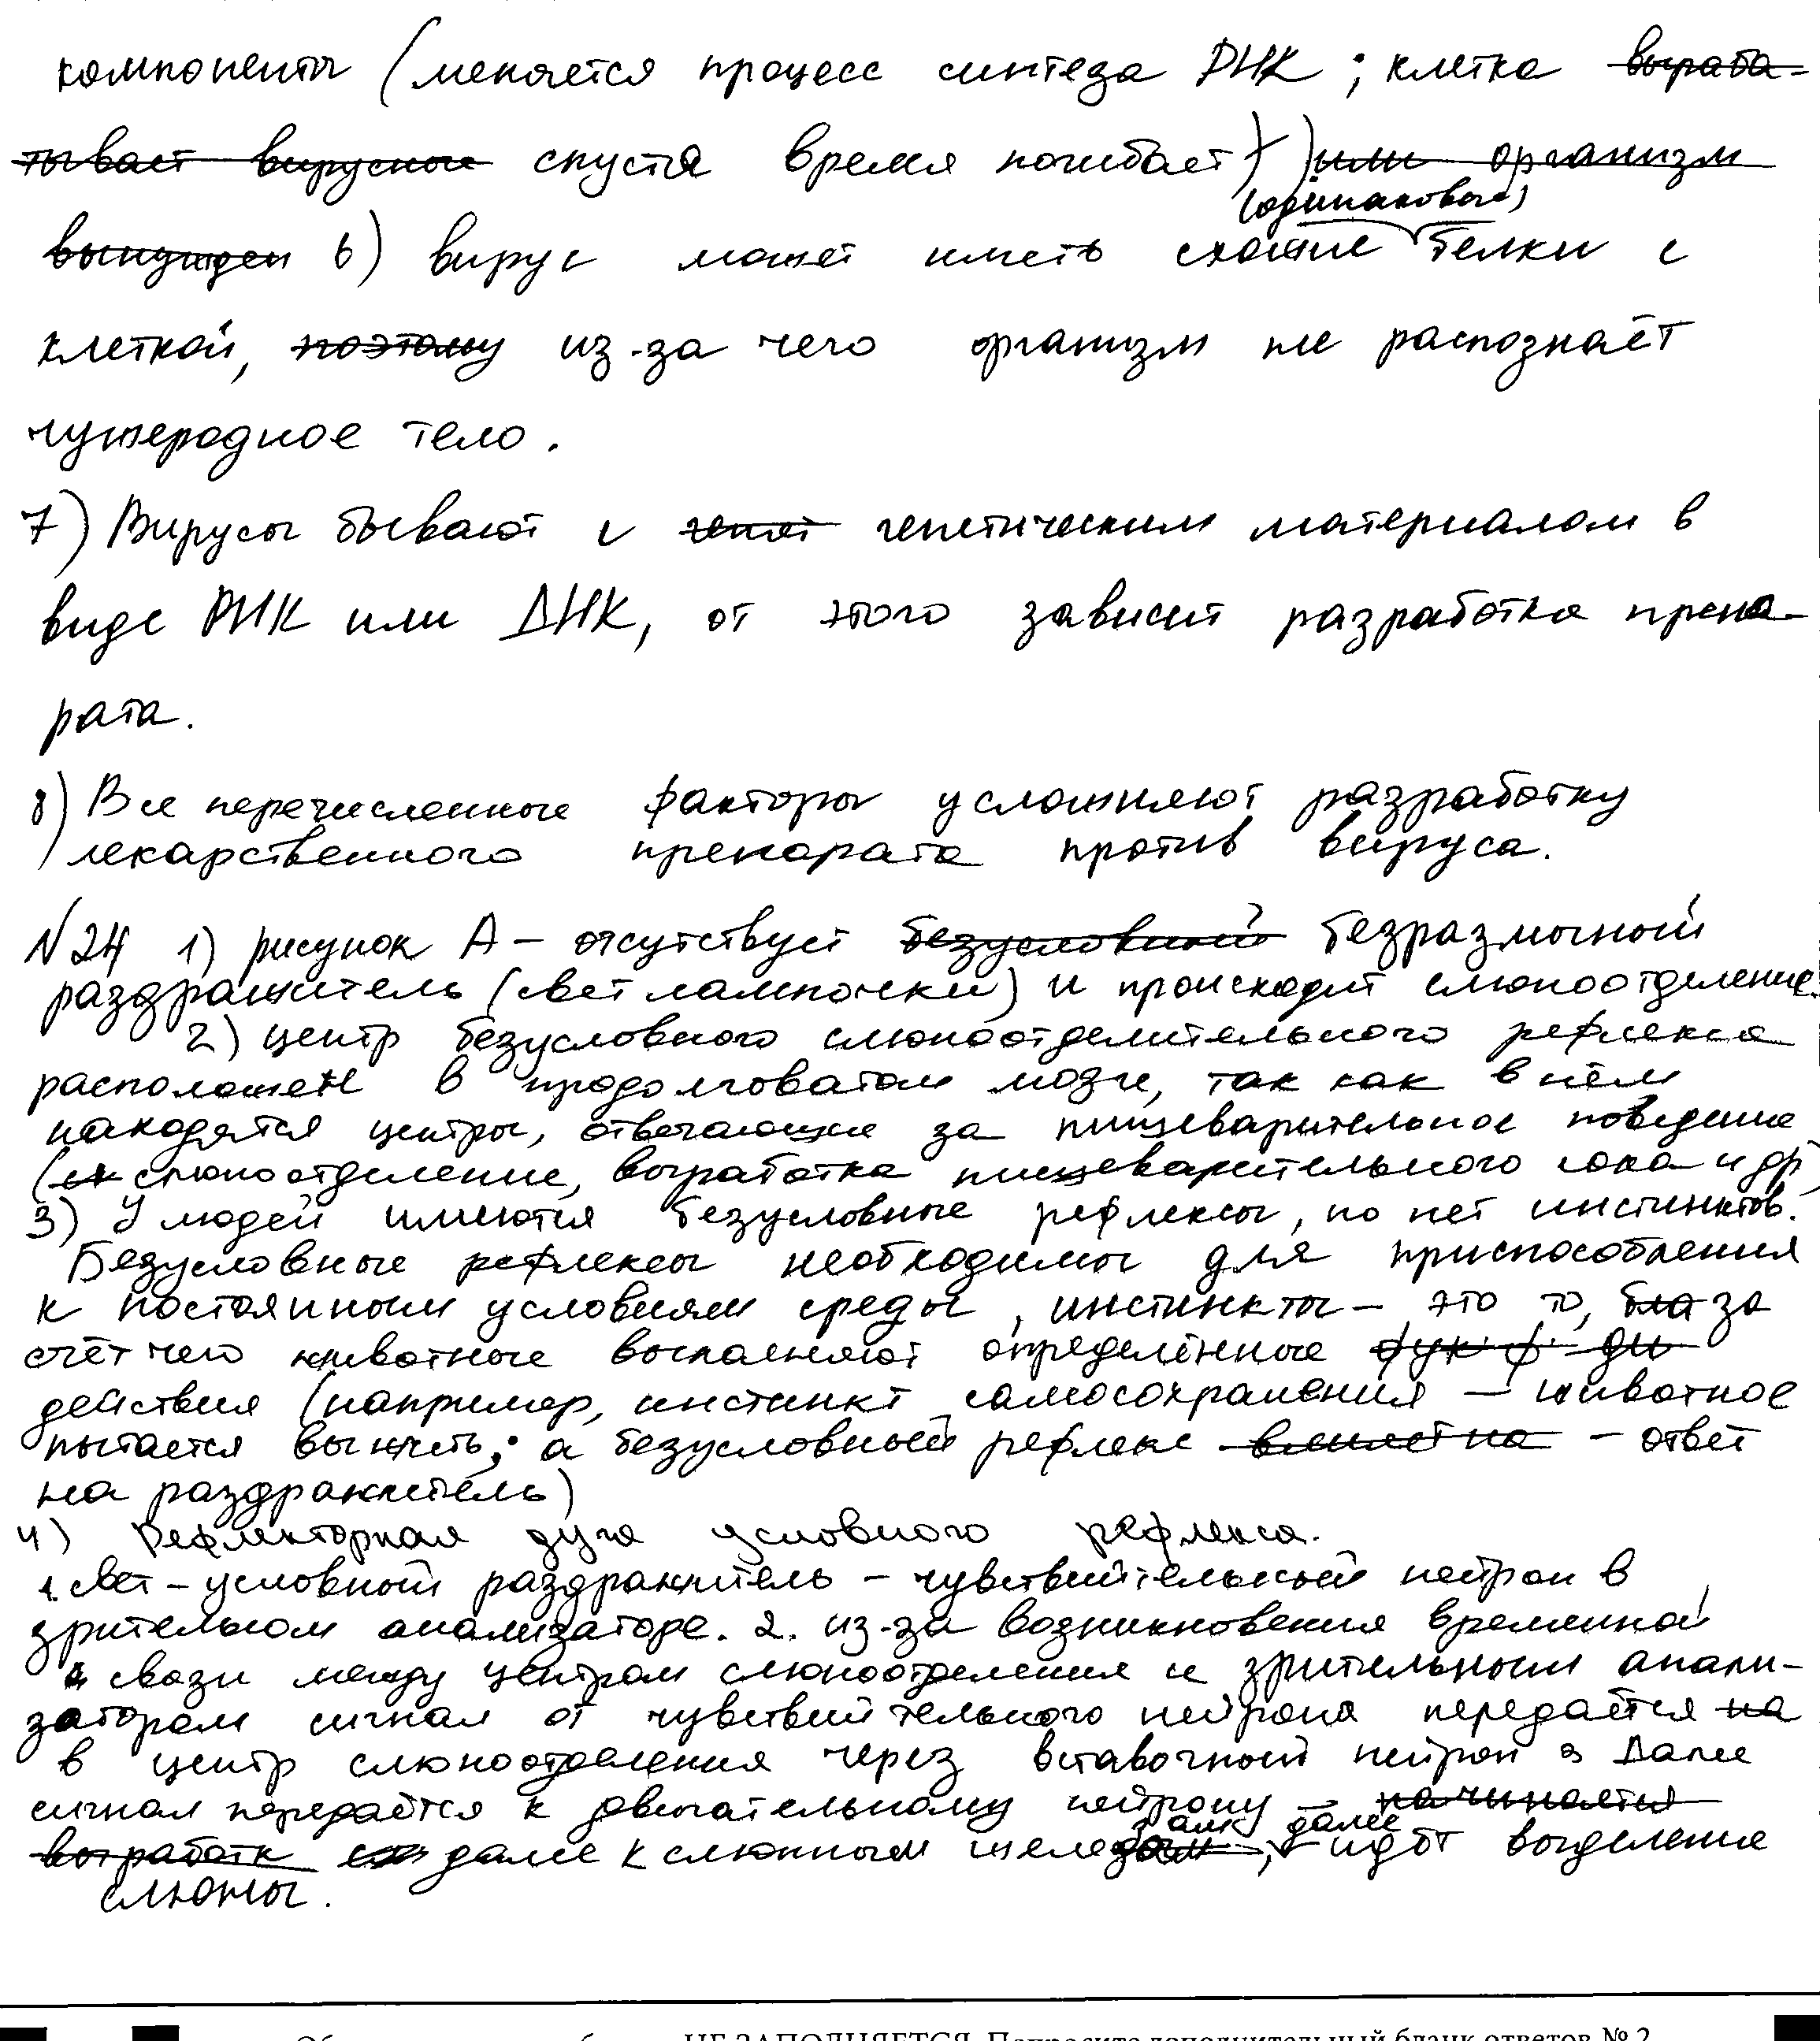 компоненты (меняется процесс синтеза РНК; клетка выраба-
тывает вирусные спустя время погибает) или организм
(одинаковые)
вынужден 6) вирус может иметь схожие белки с
клеткой, поэтому из-за чего организм не распознаёт
чужеродное тело.
7) Вирусы бывают с генет генетическим материалом в
виде РНК или ДНК, от этого зависит разработка препа-
рата.
8) Все перечисленные факторы усложняют разработку
лекарственного препарата против вируса.
№24 1) рисунок А – отсутствует безусловный безразмочной
раздражитель (свет лампочки) и происходит слюноотделение.
2) центр безусловного слюноотделительного рефлекса
расположен в продолговатом мозге, так как в нём
находятся центры, отвечающие за пищеварительное поведение
(слюноотделение, выработка пищеварительного сока и др)
3) У людей имеются безусловные рефлексы, но нет инстинктов.
Безусловные рефлексы необходимы для приспособления
к постоянным условиям среды, инстинкты – это то, бла за
счёт чего животные выполняют определённые
действия (например, инстинкт самосохранения – животное
пытается выжить; а безусловный рефлекс – ответ
на раздражитель)
4) Рефлекторная дуга условного рефлекса.
1. свет – условный раздражитель – чувствительный нейрон в
зрительном анализаторе. 2. из-за возникновения временной
связи между центром слюноотделения и зрительным анали-
затором сигнал от чувствительного нейрона передаётся на
в центр слюноотделения через вставочный нейрон 3 Далее
сигнал передаётся к двигательному нейрону – начинается
ам далее
выработк далее к слюнным желез , идёт выделение
слюны.
НЕ ЗАПОЛНЯЕТСЯ. Попросите дополнительный бланк ответов № 2